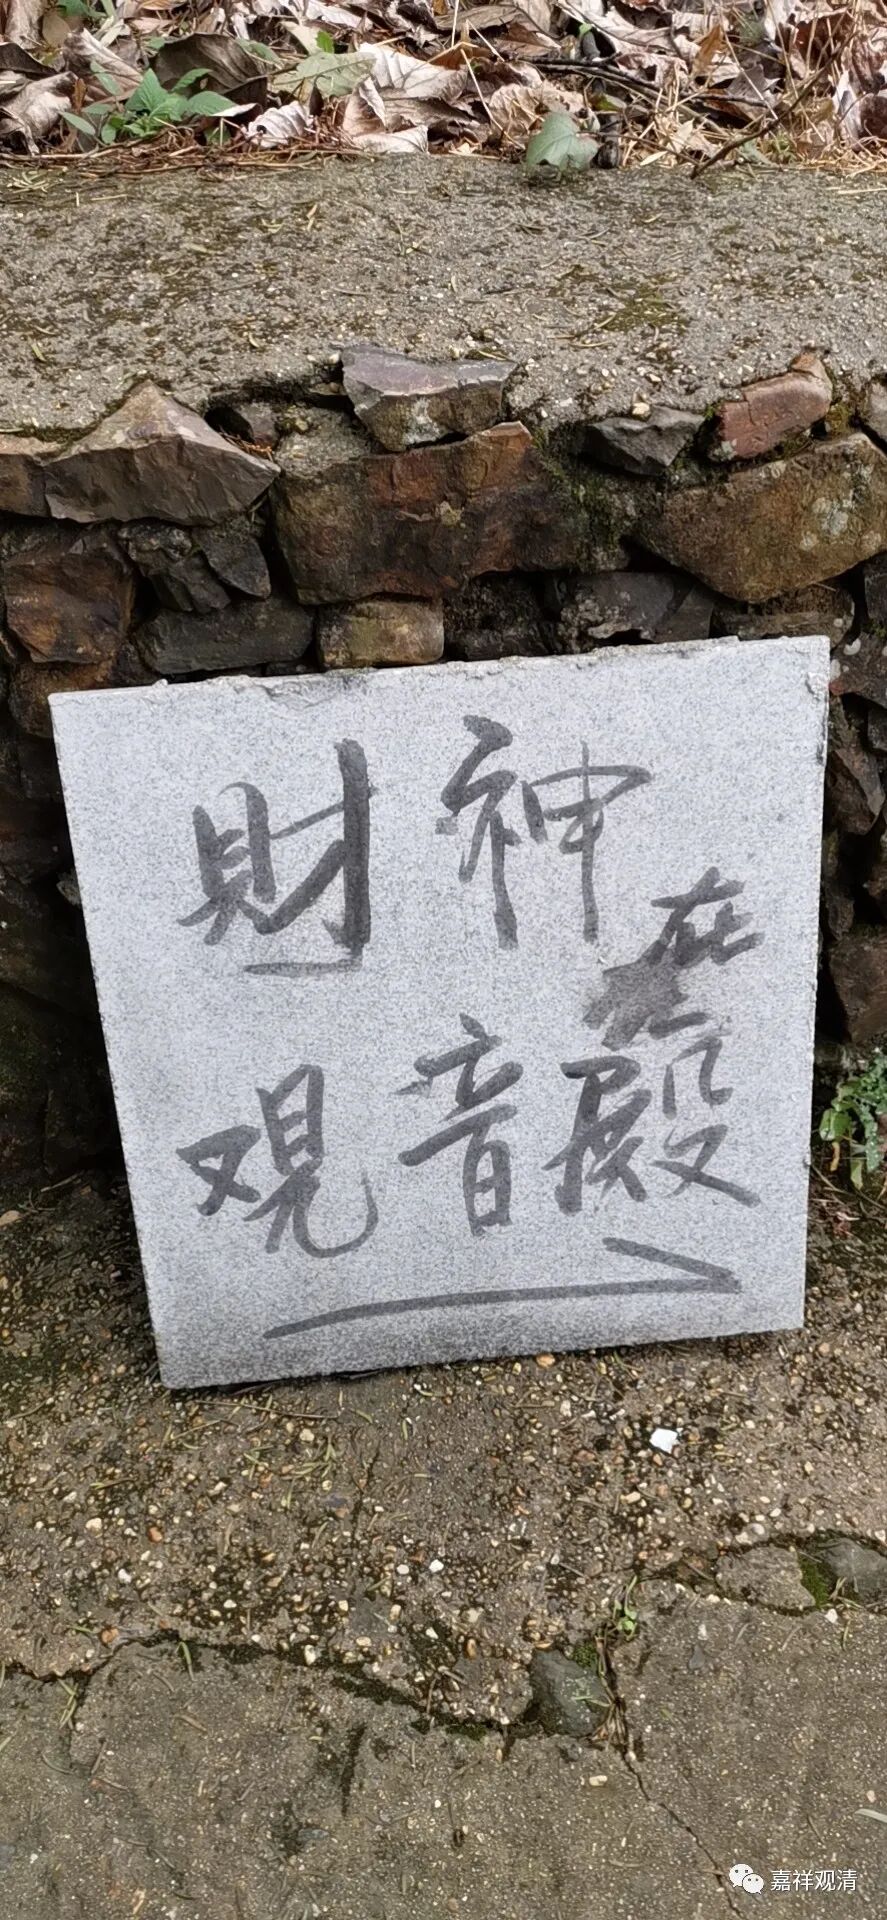 財神
在
观音殿
嘉祥观清